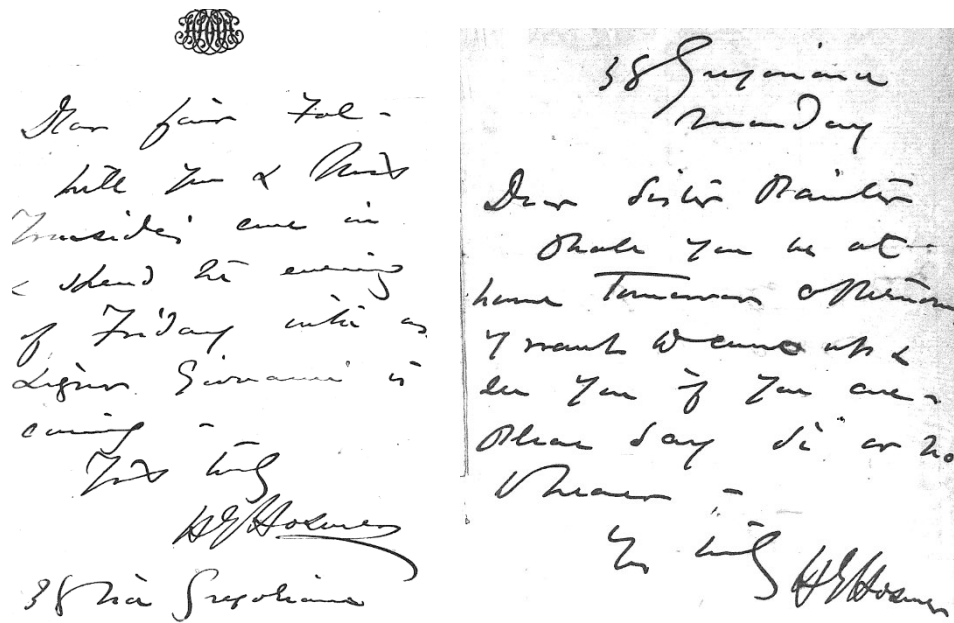 Dear fair
Will you & Miss
come in
& spend the evening
of Friday with us
Signor Giovanni is
coming -
Yrs truly
HGHosmer
38 Via Gregoriana
38 Gregoriana
Monday
Dear Sister Painter
Shall you be at
home Tomorrow afternoon
I want to come up &
see you if you are -
Please say si or no
bearer -
Yrs truly
HGHosmer